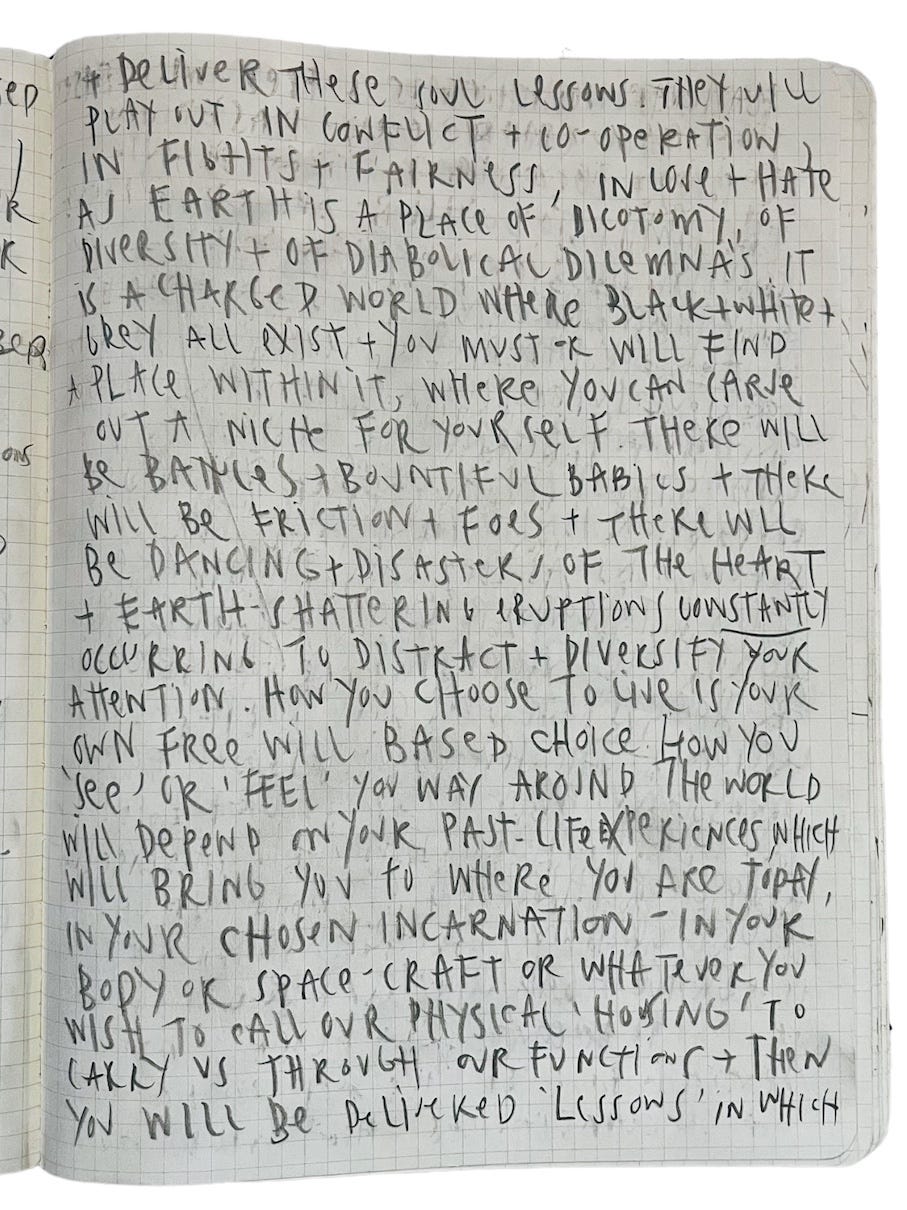 + DELIVER THESE SOUL LESSONS. THEY WILL
PLAY OUT IN CONFLICT + CO-OPERATION,
IN FIGHTS + FAIRNESS, IN LOVE + HATE
AS EARTH IS A PLACE OF DICOTOMY, OF
DIVERSITY + OF DIABOLICAL DILEMNA'S. IT
IS A CHARGED WORLD WHERE BLACK + WHITE +
GREY ALL EXIST + YOU MUST + WILL FIND
A PLACE WITHIN IT, WHERE YOU CAN CARVE
OUT A NICHE FOR YOURSELF. THERE WILL
BE BATTLES + BOUNTIFUL BABIES + THERE
WILL BE FRICTION + FOES + THERE WILL
BE DANCING + DISASTERS OF THE HEART
+ EARTH-SHATTERING ERUPTIONS CONSTANTLY
OCCURRING TO DISTRACT + DIVERSIFY YOUR
ATTENTION. HOW YOU CHOOSE TO LIVE IS YOUR
OWN FREE WILL BASED CHOICE. HOW YOU
'SEE' OR 'FEEL' YOU WAY AROUND THE WORLD
WILL DEPEND ON YOUR PAST-LIFE EXPERIENCES, WHICH
WILL BRING YOU TO WHERE YOU ARE TODAY,
IN YOUR CHOSEN INCARNATION - IN YOUR
BODY OR SPACE-CRAFT OR WHATEVER YOU
WISH TO CALL OUR PHYSICAL 'HOUSING' TO
CARRY US THROUGH OUR FUNCTIONS + THEN
YOU WILL BE DELIVERED 'LESSONS' IN WHICH